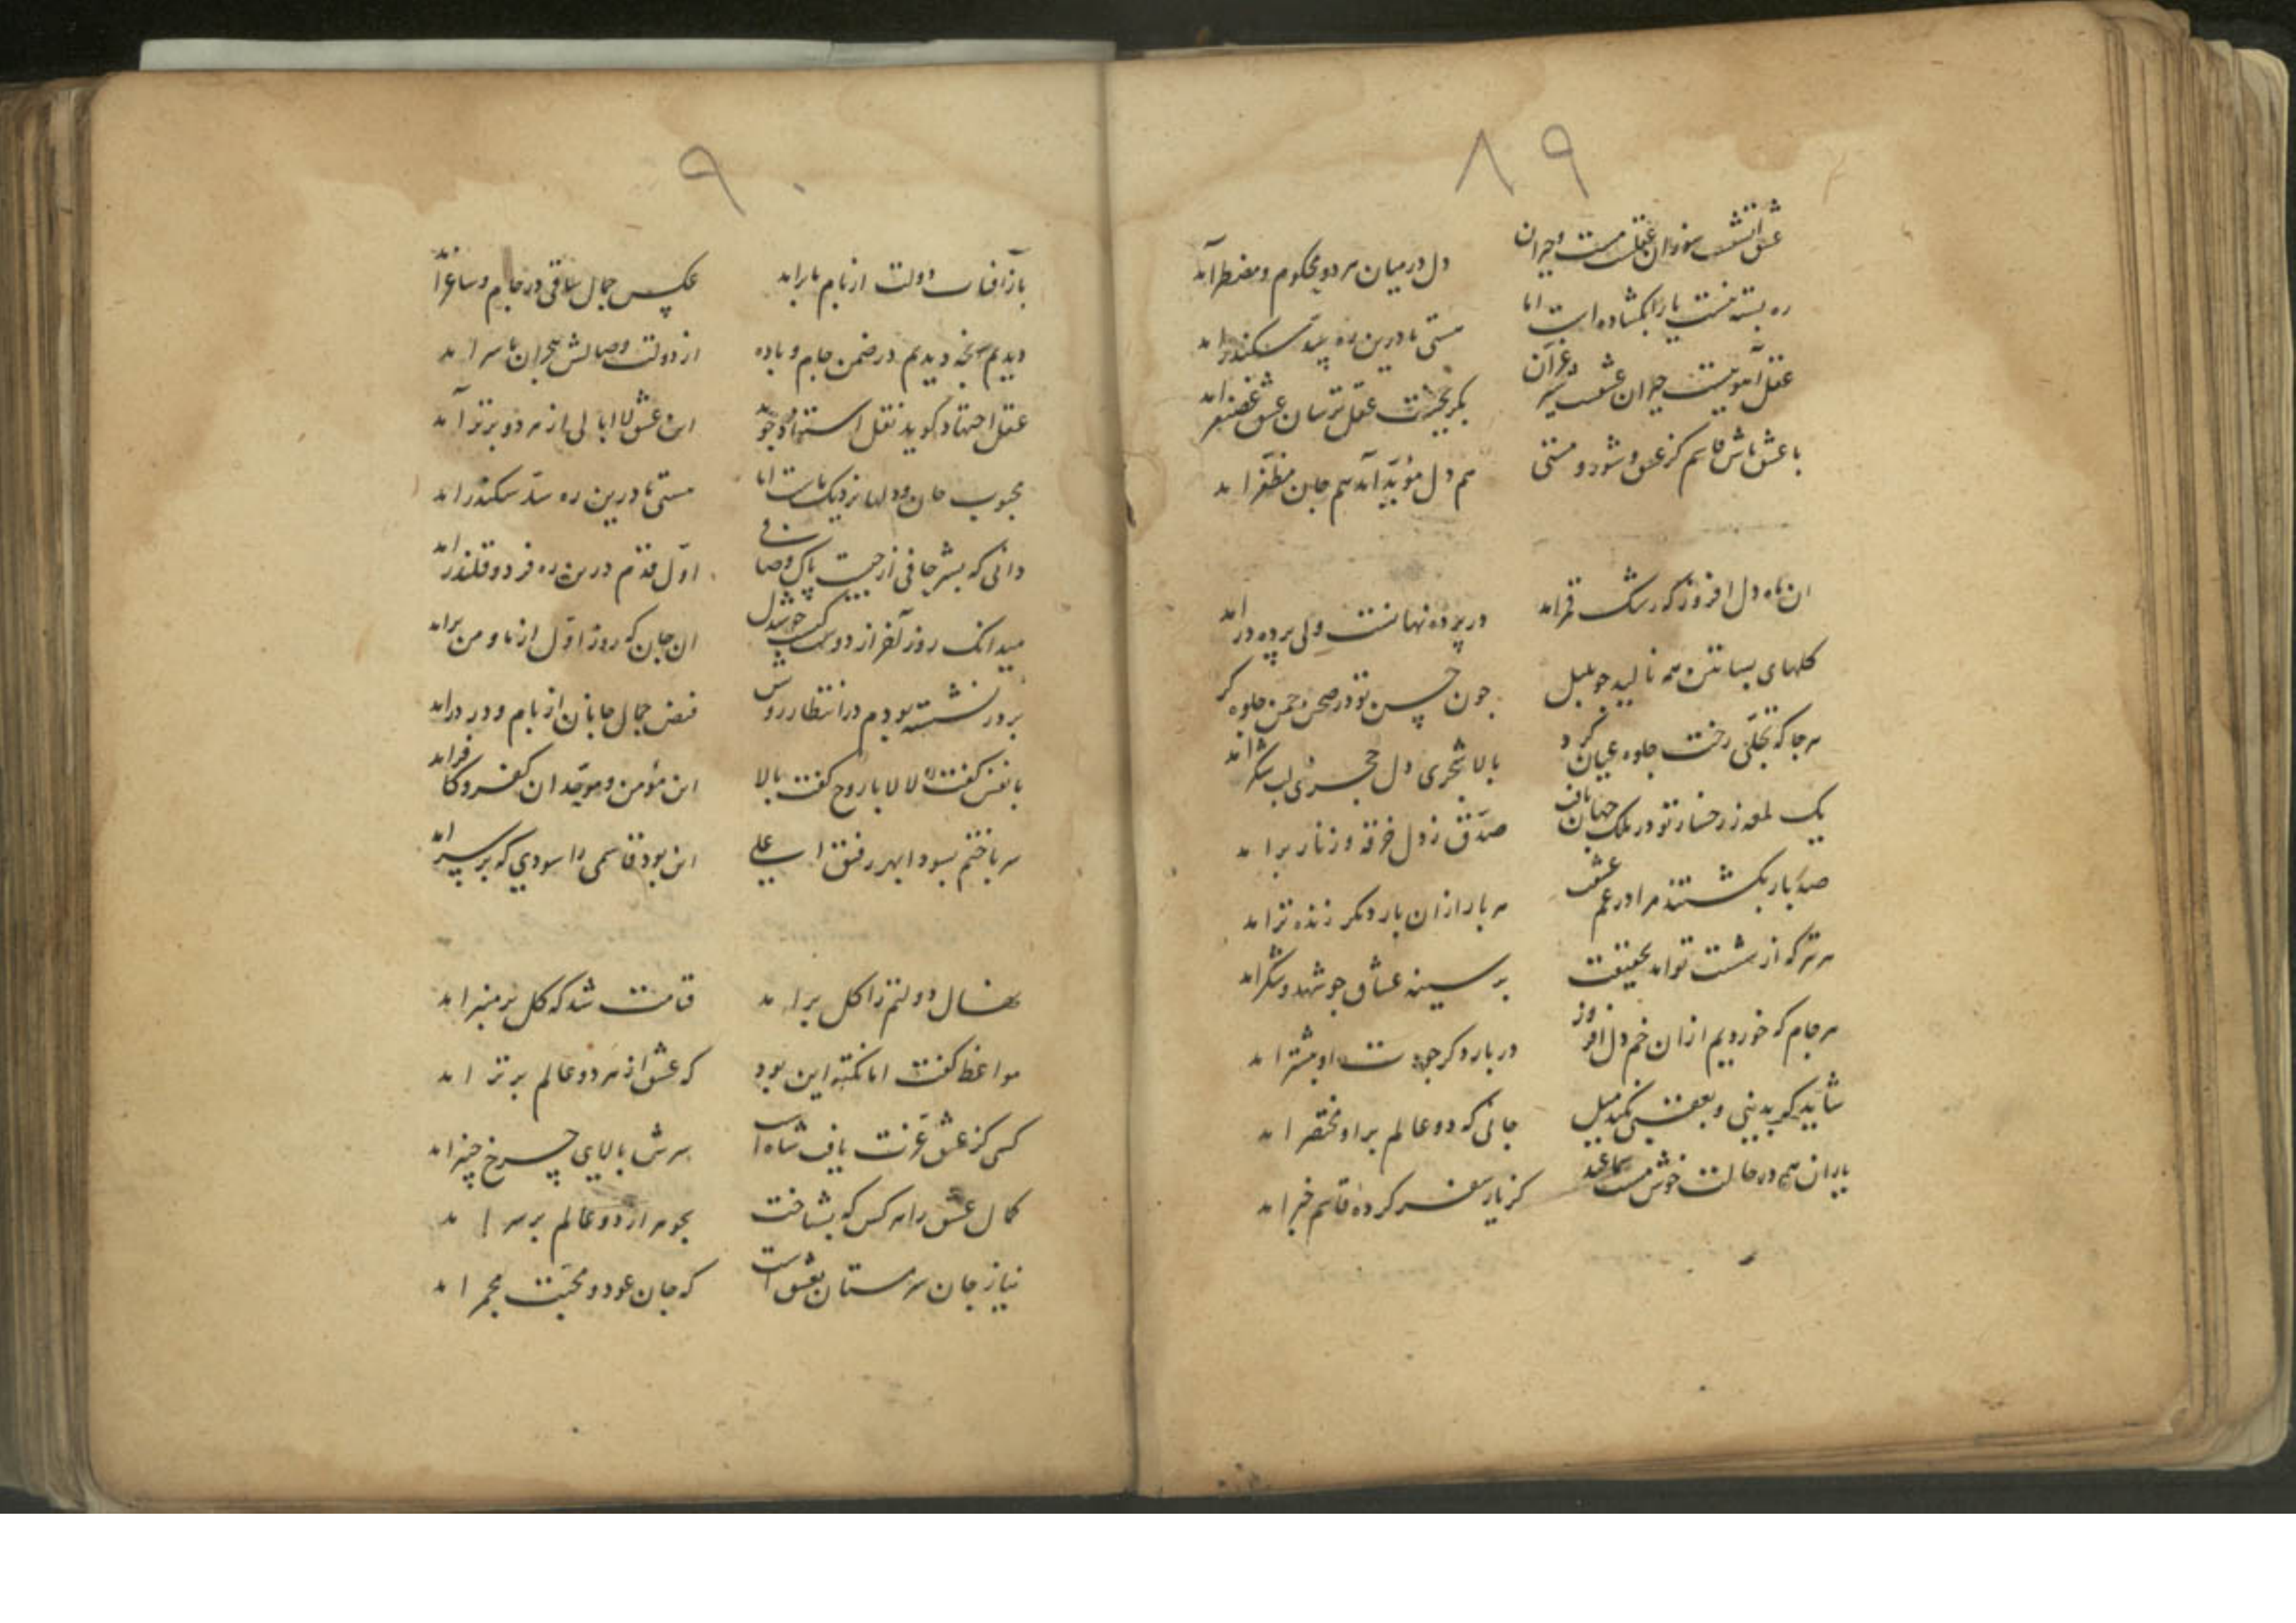 ۸۹
عشق آتشیست سوزان عقلست مست و حیران دل در میان هر دو محکوم و مضطر آمد
ره بسته نیست یارا بگشاده است اما مستی ما درین ره سد سکندر آمد
عقل آهوییست حیران عشقست شیر غران بگریخت عقل ترسان عشق غضنفر آمد
با عشق باش قاسم کز عشق و شور و مستی هم دل مؤید آمد هم جان مظفر آمد
ان ماه دل افروز که رشک قمر آمد در پرده نهانست ولی پرده در آمد
کلهای بساتین همه نالید چو بلبل چون حسن تو در صحن چمن جلوه کر آمد
هر جا که تجلی رخت جلوه عیان کرد بالا شجری دل حجری لب شکر آمد
یک لمعه ز رخسار تو در ملک جهان تافت صدق ز دل خرقه و زنار بر آمد
صد بار بکشتند مرا در غم عشقت هر بار از ان بار دکر زنده تر آمد
هر تیر که از شست تو آمد بحقیقت بر سینه عشاق چو شهد و شکر آمد
هر جام که خوردیم از ان خم دل افروز در بار دکر جودت او بیشتر آمد
شاید که ببینی و بعقبی نکند میل جانی که دو عالم بر او مختصر آمد
یاران همه در حالت خوش مست سماعند کز یار سفر کرده قاسم خبر آمد
۹۰
باز آفتاب دولت از بام ما بر آمد عکس جمال ساقی در جام و ساغر آمد
دیدیم آنچه دیدیم در ضمن جام و باده از دولت وصالش هجران ما سر آمد
عقل اجتهاد کوید نقل استناد جوید این عشق لاابالی از هر دو برتر آمد
محبوب جان و دلها نزدیک ماست اما مستی ما درین ره سد سکندر آمد
دانی که بشر حافی از جیب پاک و صافی اول قدم درین ره فرد و قلندر آمد
میدانک روز آخر از دوست کشت خوشدل ان جان که روز اول از ما و من بر آمد
بر در نشسته بودم در انتظار رویش فیض جمال جانان از بام و در در آمد
با نفس کفت لا لا با روح کفت بالا این مؤمن و موحد ان کفر و کافر آمد
سر باختم بسودا بهر رفیق اعلی این بود قاسمی را سودی که بر سر آمد
نهال دولتم را کل بر آمد قیامت شد که کل بر منبر آمد
مواعظ کفت اما نکته این بود که عشق از هر دو عالم برتر آمد
کسی کز عشق عزت یافت شاه است سرش بالای چرخ چنبر آمد
کمال عشق را هر کس که بشناخت بجوهر از دو عالم بر سر آمد
نیاز جان سرمستان بعشق است که جان عود و محبت مجمر آمد